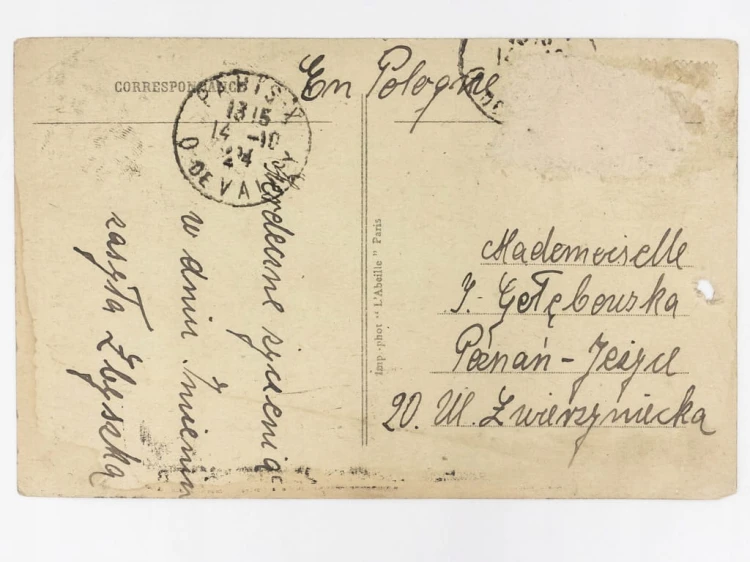 CORRESPONDANCE
En Pologne
PARIS X
1315
14 -10
24
Serdeczne życzenia
w dniu Imienin
zasyła Zbyszka
Imp.-phot "L'Abeille" Paris
Mademoiselle
J. Gołębowska
Poznań - Jeżyce
20. Ul. Zwierzyniecka